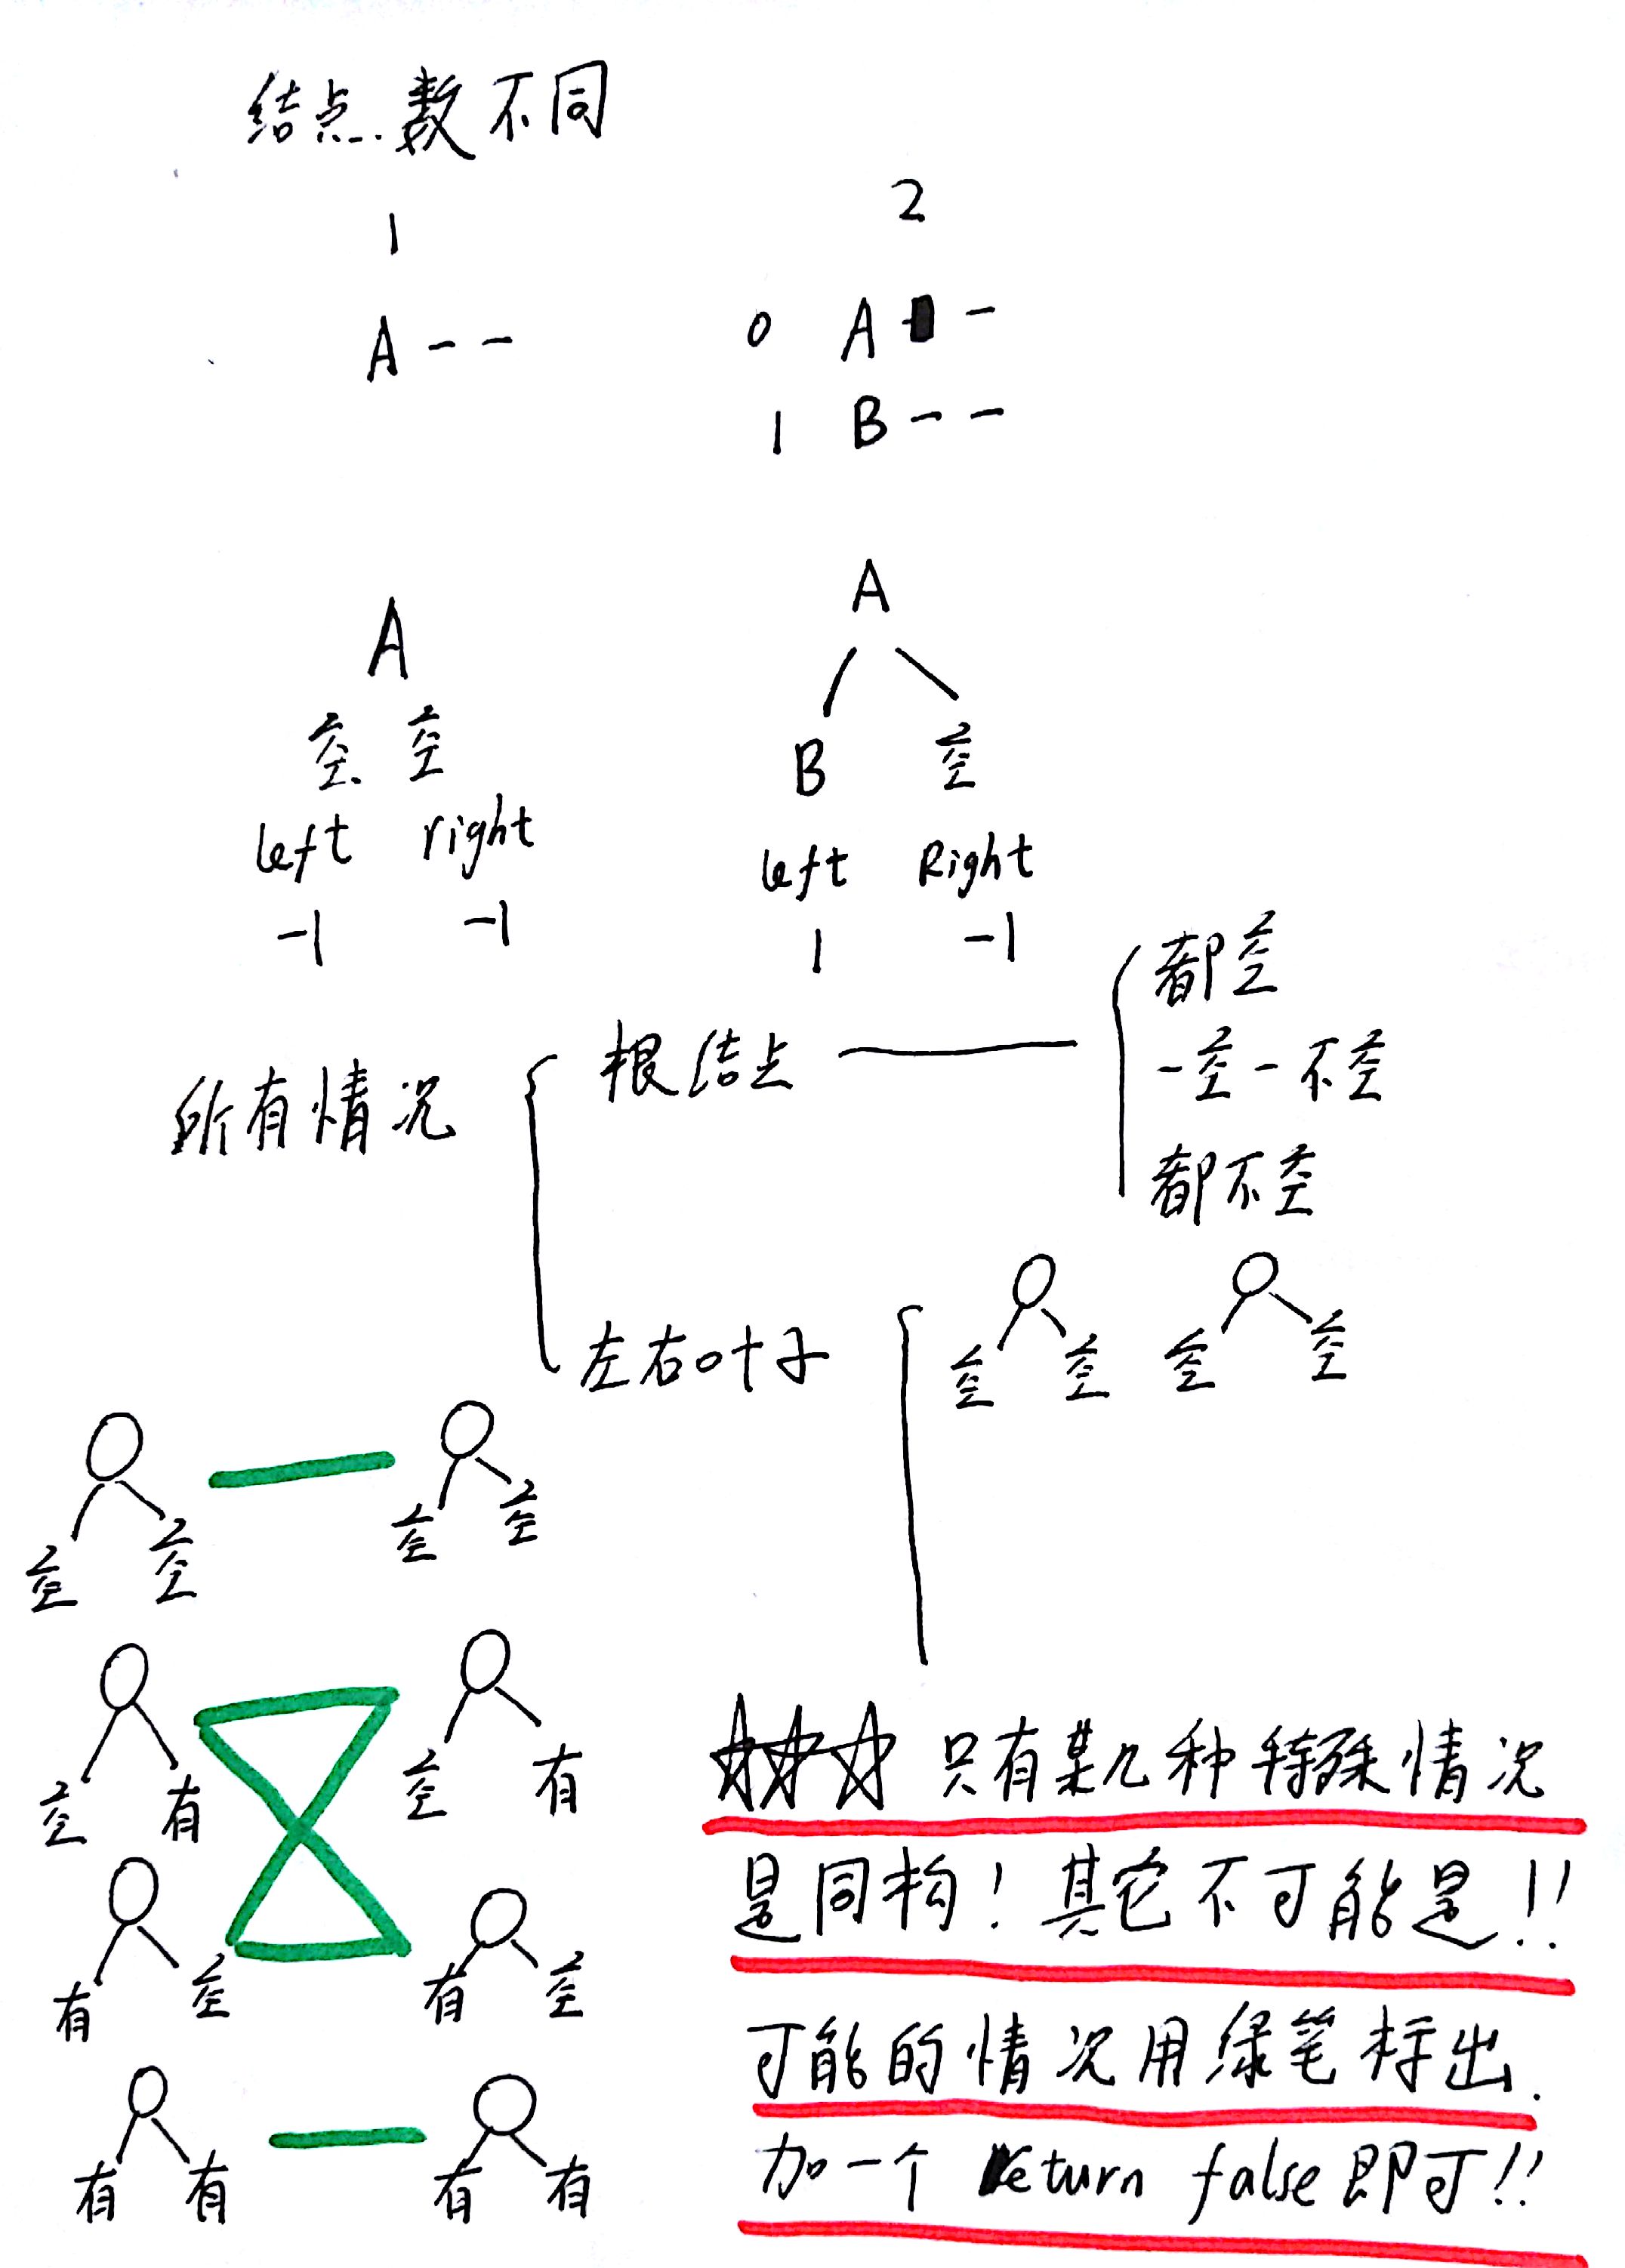 结点数不同
1 2
A - - 0 A - -
1 B - -
A A
空 空 B 空
left right left Right
-1 -1 1 -1
所有情况 根结点 都空
一空一不空
都不空
左右叶子 空 空 空 空
空 空 空 空
空 有 空 有
有 空 有 空
有 有 有 有
☆☆☆ 只有某几种特殊情况
是同构! 其它不可能是!!
可能的情况用绿笔标出.
加一个 return false 即可!!